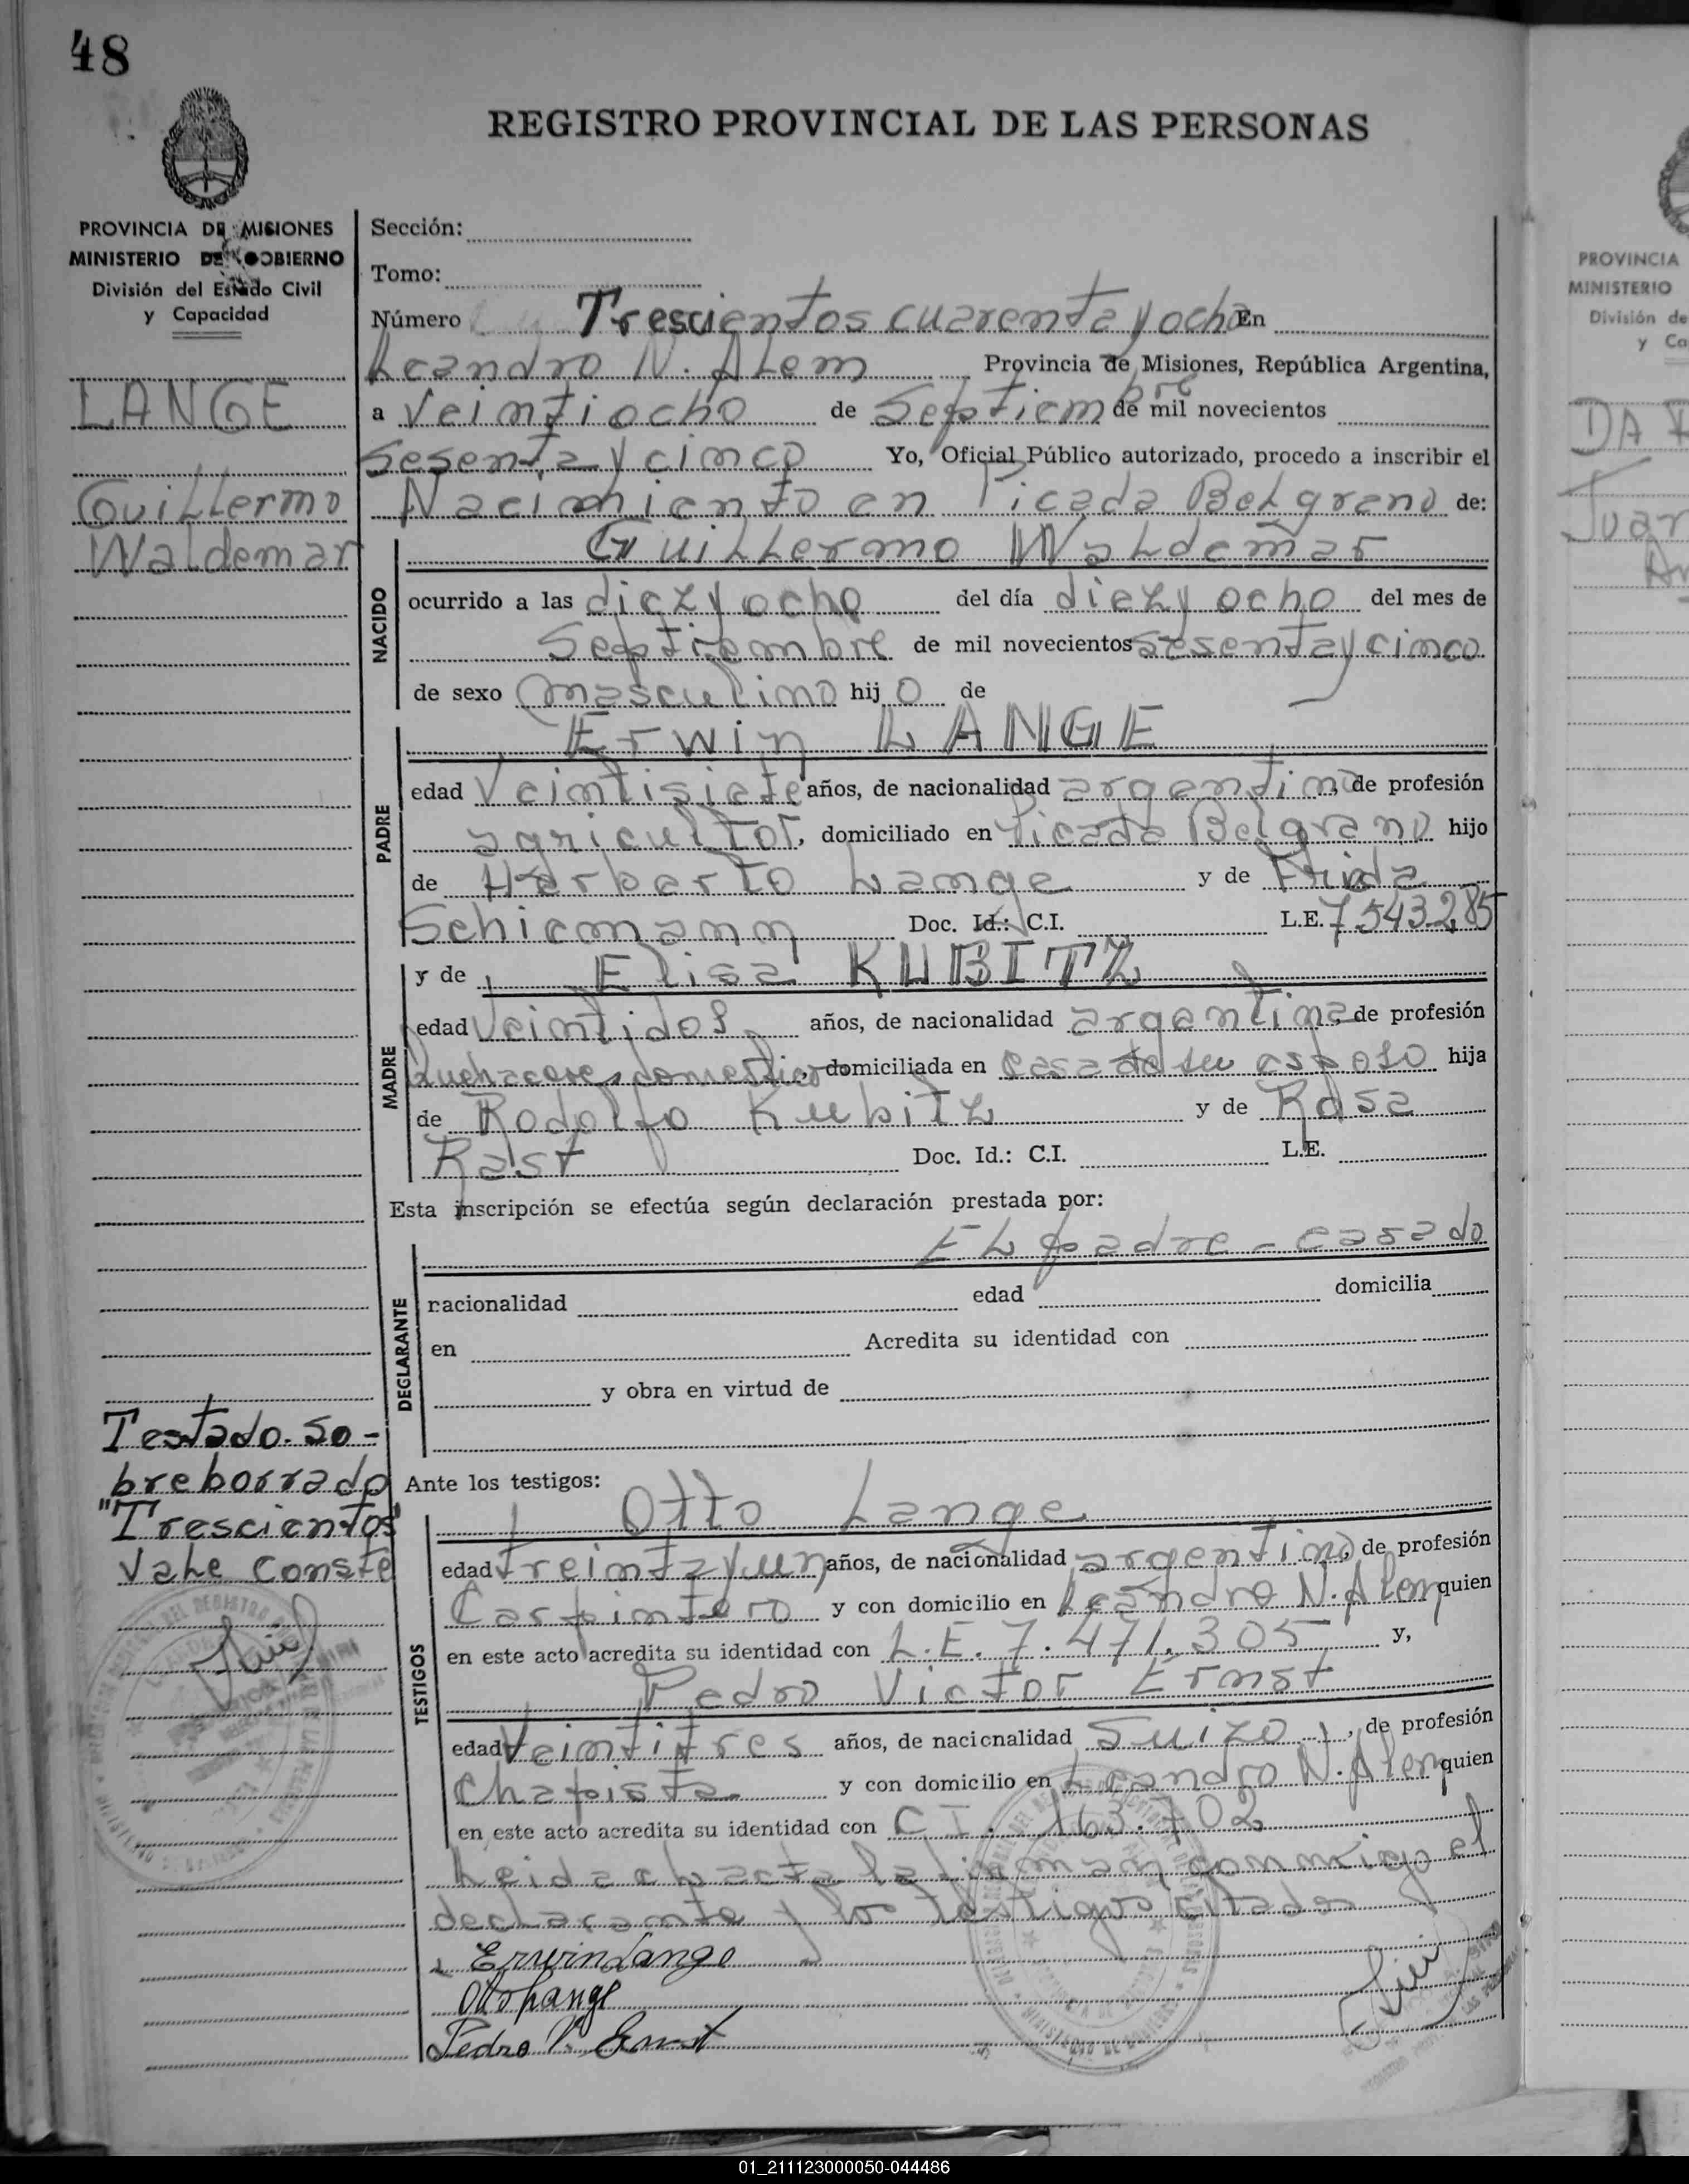 48
REGISTRO PROVINCIAL DE LAS PERSONAS
PROVINCIA DE MISIONES
MINISTERIO DE GOBIERNO
División del Estado Civil
y Capacidad
LANGE
Guillermo
Waldemar
Sección:
Tomo:
Número Trescientos cuarenta y ocho En
Leandro N. Alem Provincia de Misiones, República Argentina,
a Veintiocho de Septiembre de mil novecientos
Sesenta y cinco Yo, Oficial Público autorizado, procedo a inscribir el
Nacimiento en Picada Belgrano de:
NACIDO
Guillermo Waldemar
ocurrido a las diez y ocho del día diez y ocho del mes de
Septiembre de mil novecientos sesenta y cinco
de sexo masculino hijo de
PADRE
Erwin LANGE
edad Veintisiete años, de nacionalidad argentino, de profesión
agricultor, domiciliado en Picada Belgrano hijo
de Herberto Lange y de Frida
Schiemann Doc. Id.: C.I. L.E. 7.543.285
MADRE
y de Elisa KUBITZ
edad Veintidos años, de nacionalidad argentina de profesión
Quehaceres domesticos, domiciliada en casa de su esposo hija
de Rodolfo Kubitz y de Rosa
Rast Doc. Id.: C.I. L.E.
Esta inscripción se efectúa según declaración prestada por:
DECLARANTE
El padre - casado
nacionalidad edad domicilia
en Acredita su identidad con
y obra en virtud de
Testado. so-
breborrado
"Trescientos"
Vale Conste
Ante los testigos:
TESTIGOS
Otto Lange
edad treinta y un años, de nacionalidad argentino, de profesión
Carpintero y con domicilio en Leandro N. Alem quien
en este acto acredita su identidad con L.E. 7.471.305 y,
Pedro Victor Ernst
edad Veintitres años, de nacionalidad Suizo, de profesión
Chapista y con domicilio en Leandro N. Alem quien
en este acto acredita su identidad con C I. 163.702
Leida el acta la firman conmigo el
declarante y los testigos citados
Erwin Lange
Otto Lange
Pedro V. Ernst
PROVINCIA
MINISTERIO
División de
y Ca
DA
Juan
01_211123000050-044486